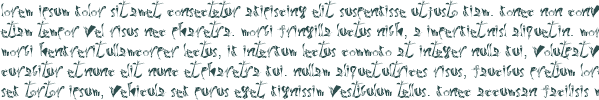 lorem ipsum dolor sit amet, consectetur adipiscing elit suspendisse ut justo diam. donec non conv
etiam tempor vel risus nec pharetra. morbi fringilla luctus nibh, a imperdiet nisl aliquet in. mor
morbi hendrerit ullamcorper lectus, id interdum lectus commodo at integer nulla dui, volutpat v
curabitur et nunc elit nunc et pharetra dui. nullam aliquet ultrices risus, faucibus pretium lor
sed tortor ipsum, vehicula sed purus eget dignissim vestibulum tellus. donec accumsan facilisis m